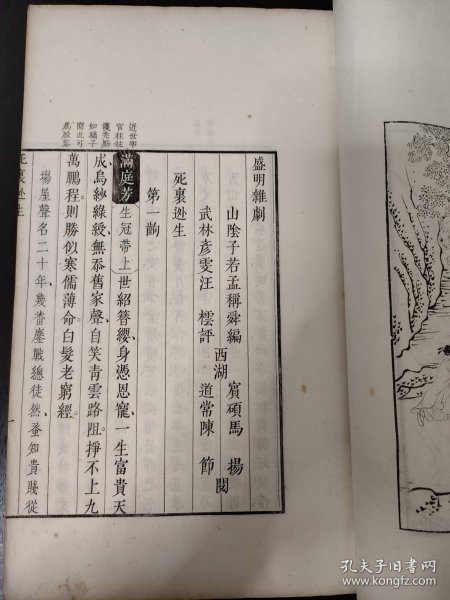 盛明雜劇
山陰子若孟稱舜編
西湖
賓碩馬 揚
武林彥雯汪 櫄評
道常陳 節
閱
死裏逃生
第一齣
滿庭芳
生冠帶上世紹簪纓身憑恩寵一生富貴天
成烏紗綠綬無忝舊家聲自笑青雲路阻掙不上九
萬鵬程則勝似寒儒薄命白髮老窮經
場屋聲名二十年幾番鏖戰總徒然蚤知貴賤從
近世宰
官往往
如驕子
死裏逃生
一
孔夫子旧书网
www.kongfz.com